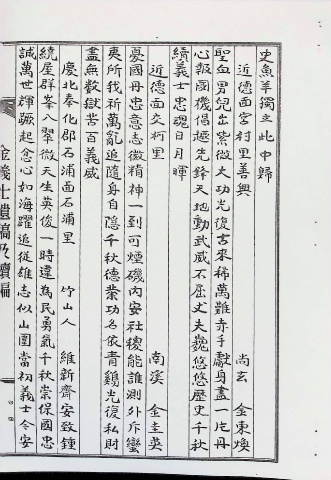 史魚羊獨立此中歸
近德面宮村里善興　尚玄　金東煥
聖血男兒出紫微大功光復古來稀萬難赤手獻身盡一片丹
心報國機倡起先鋒天地動武威不屈丈夫巍悠悠歷史千秋
續義士忠魂日月暉
近德面交柯里　南溪　金圭英
憂國丹忠意志徽精神一到可煙磯內安社稷能誰測外斥蠻
夷所我祈萬亂追隨身自隱千秋德業功名依青鷄光復私財
盡無數獄苦百義威
慶北奉化郡石浦面石浦里　竹山人　維新齋安致鍾
繞屋群峯八翠微天生英俊一時違為民勇氣千秋崇保國忠
誠萬世輝蹶起念心如海躍追從雄志似山圍當初義士令安
金義士遺稿及續編